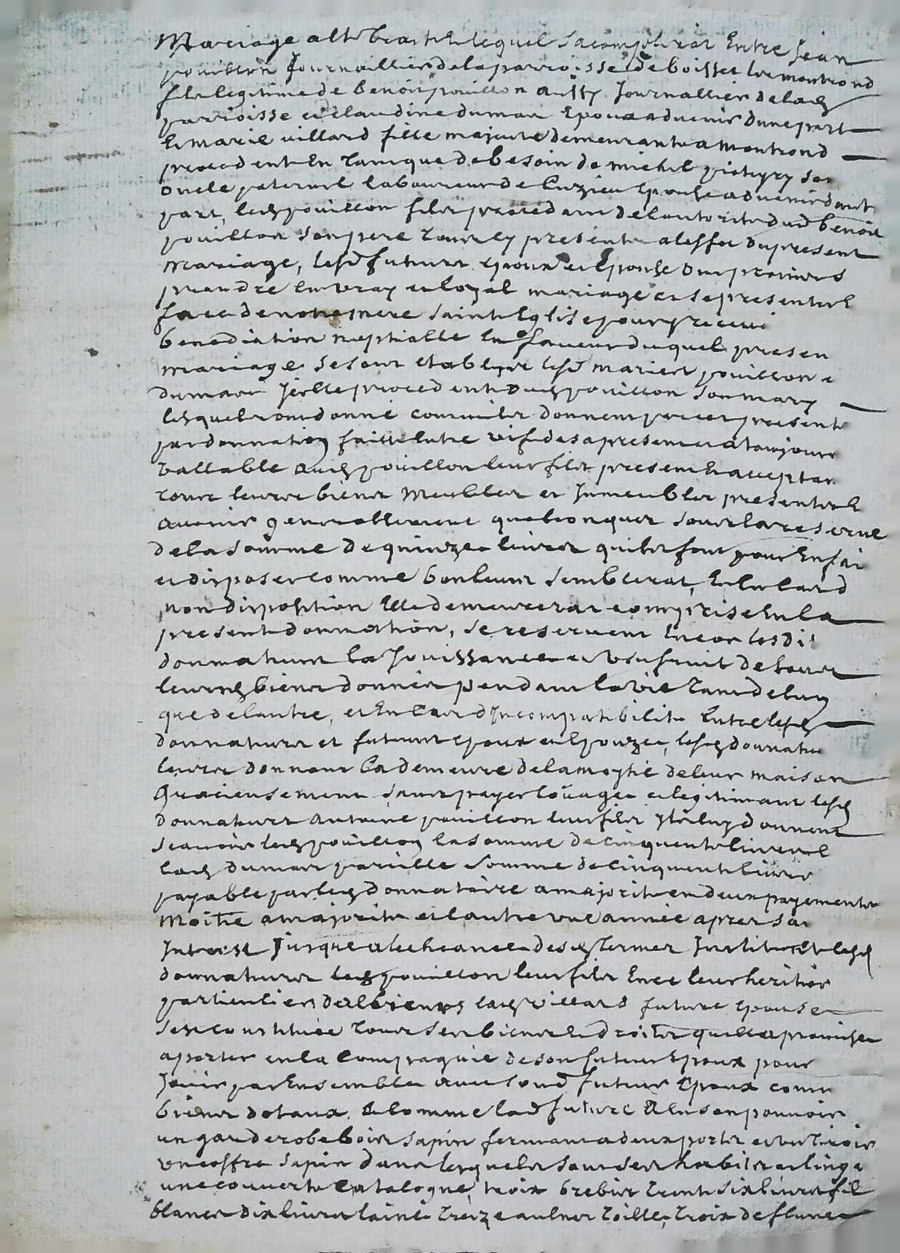 Mariage a lt lequel Sacomplirat Entre Jean
pouillon Journaillier de la parroisse de boisset les montrond
fils legitime de benoit pouillon aussy Journallier de lad
parroisse et claudine dumas Epoux advenir dune part
Et marie villard fille majeure demeurante a montrond
procedent En de besoin de michel son
oncle paternel laboureur de Cuzieu Epouse advenir dautre
part, led pouillon fils procedant de lautorité dud benoit
pouillon son pere present a leffet du present
mariage, lesd futurs epoux et Epouse ont promis
prendre En vray et loyal mariage et se presenter En
face de notre mere sainte Eglise pour y recevoir
benediction nuptialle En faveur duquel presen
mariage se sont Etablys lesd mariés pouillon e
dumas Jcelle procedente dud pouillon son mary
lesquels ont donné comme ils donnent par ces presente
par donnation faitte Entre vifs des a present et a toujours
vallable aud pouillon leur fils present & acceptan
tous leurs biens Meubles et Jmmeubles presents &
avenir generallement quelconques sous la reserve
de la somme de quinze livres quils font pour En fai
et disposer comme bon leur semblerat, Et En cas d
non disposition Elle demeurera comprise En la
presente donnation, se reservent Encor lesdi
donnateurs la Jouissance et Usufruit de tous
leursd biens donnés pendant la vie tant de luy
que de lautre, et En cas dIncompatibilité Entre lesd
donnateurs et futeurs Epoux et Epouze, lesd donnate
leurs donnent la demeure de la moytié de leur maison
Gracieusement sans payer loüage et legitimant lesd
donnateurs antoine pouillon leur fils Jls luy donnent
scavoir led pouillon la somme de cinquente livres &
lad dumas pareille somme de cinquente livres
payable par led donnataire a majorité en deux payements
Moitié a majorité et lautre une année apres sa
Interest Jusque a lecheance desd termes Jnstituent lesd
donnateurs led pouillon leur fils leur heritier
particulier lad villard future Epouse
sest constituée tous ses biens & droits quelle a promise
aporter en la Compagnie de son futeur Epoux pour
Jouir par Ensemble avec sond futeur Epoux comm
biens dotaux. & comme lad future a En son pouvoir
un garderobe bois sapin fermant a deux porte et un tiroir
un coffre sapin dans lesquels sont ses habits et linge
une couverte Catalogne, trois brebis trente six livres fil
blanc dix livres laine treize aulnes toille, trois